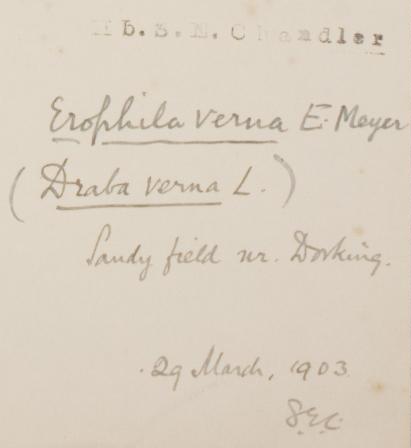 Hb. S. E. Chandler
Erophila verna E. Meyer
(Draba verna L.)
Sandy field nr. Dorking.
29 March, 1903
S.E.C.